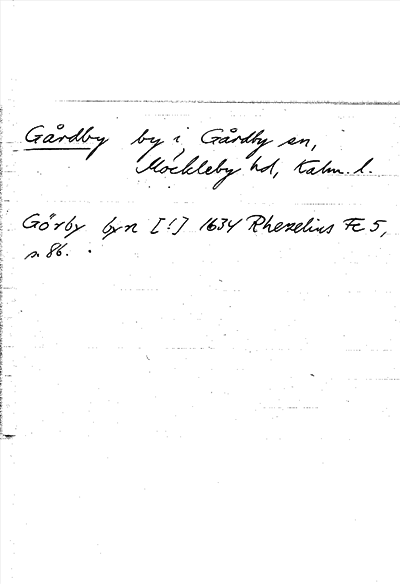 Gårdby by i Gårdby sn,
Möckleby hd, Kalm. l.
Görby byn [!] 1634 Rhezelius Fc 5,
s. 86.